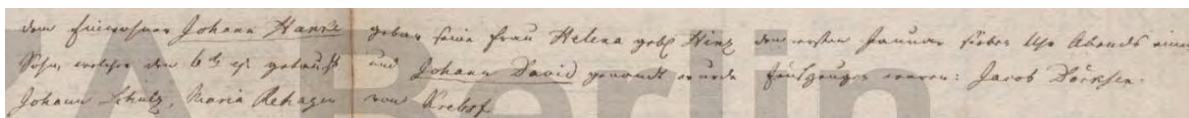 dem Einwohner Johann Hanke gebar seine Frau Helena geb. Hinz den ersten Januar sieben Uhr Abends einen
Sohn, welcher den 6ten ejd getauft und Johann David genandt wurde Taufzeugen waren: Jacob Dörksen.
Johann Schulz, Maria Rehagen von Krebsf